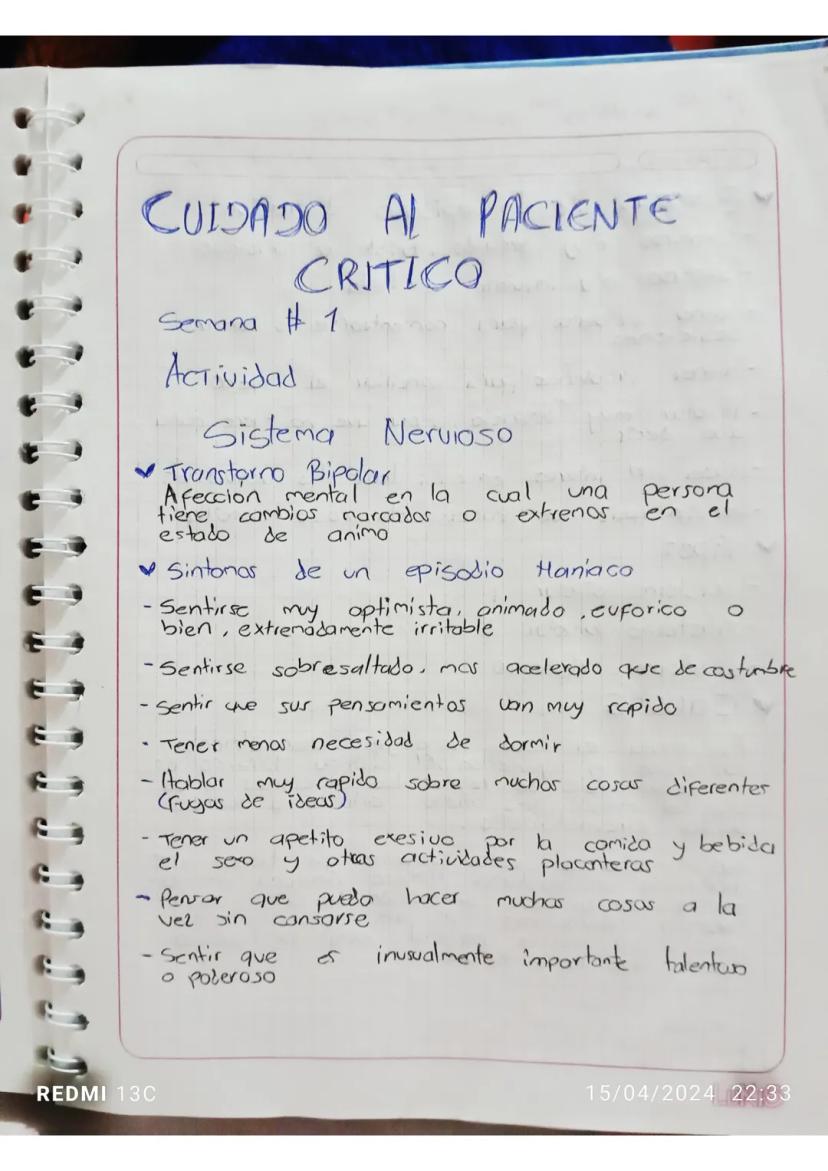 CUIDADO Al PACIENTE
CRITICO
Semana # 1
Actividad
Sistema Nervioso
Transtorno Bipolar
Afeccion mental en la cual una persona
tiene cambios marcados o extremos en el
estado de animo
Sintomas de un episodio Maniaco
- Sentirse muy optimista, animado, euforico o
bien, extremadamente irritable
- Sentirse sobresaltado, mas acelerado que de costumbre
- Sentir que sus pensamientos van muy rapido
- Tener menos necesidad de dormir
- Hablar muy rapido sobre muchas cosas diferentes
(fugas de ideas)
- Tener un apetito exesivo por la comida y bebida
el sexo y otras actividades placenteras
- Pensar que puede hacer muchas cosas a la
vez sin cansarse
- Sentir que es inusualmente importante talentoso
o poderoso
REDMI 13C
15/04/2024 22:33